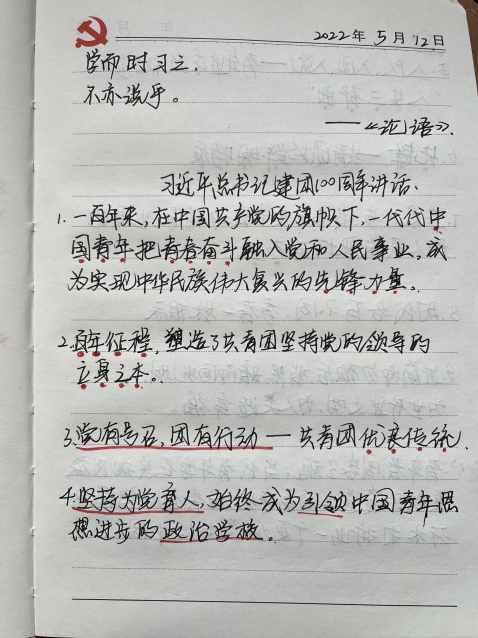 2022年5月12日
学而时习之，
不亦说乎。
——《论语》.
习近平总书记建团100周年讲话.
1.一百年来，在中国共产党的旗帜下，一代代中
国青年把青春奋斗融入党和人民事业，成
为实现中华民族伟大复兴的先锋力量。
2.百年征程，塑造了共青团坚持党的领导的
立身之本。
3.党有号召，团有行动——共青团优良传统.
4.坚持为党育人，始终成为引领中国青年思
想进步的政治学校。